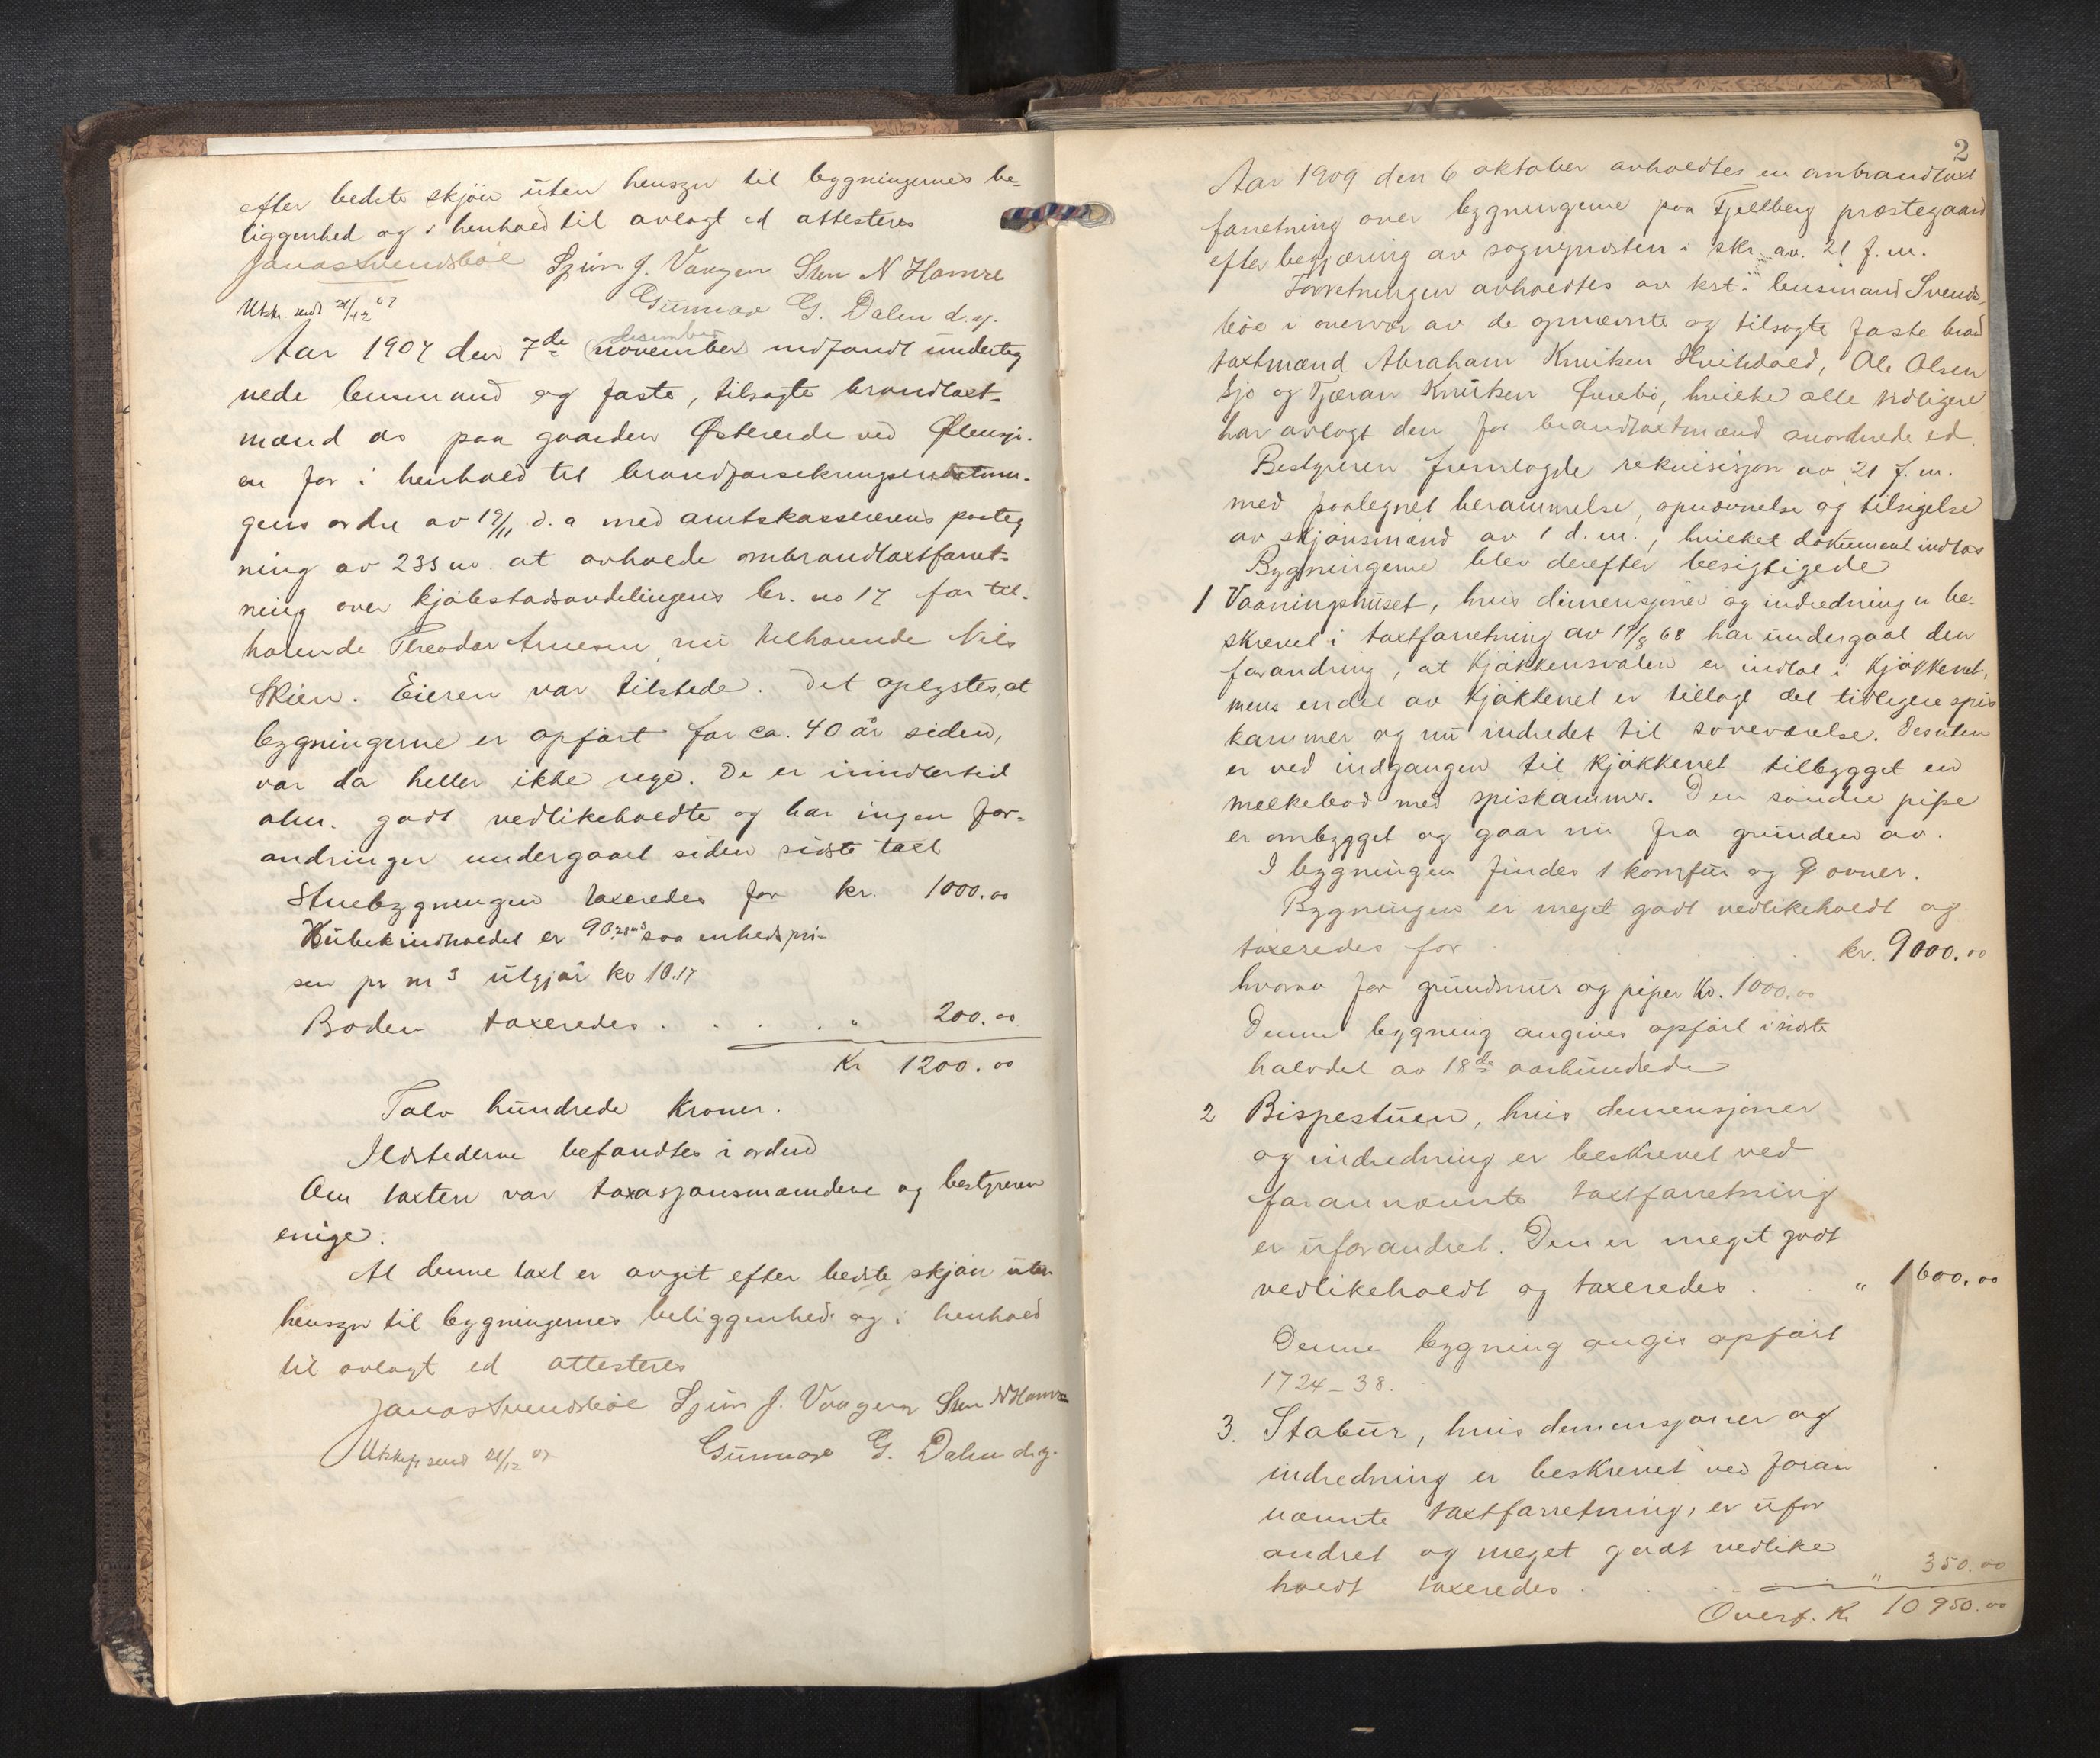 efter bedste skjön uten hensyn til bygningernes be-
liggenhed og i henhold til avlagt ed attesteres
Jonas Svendsböe Sjurn J. Vaagen Sten N Hamre
Utskr. sendt 21/12 07 Gunnar G. Dalen d.y.
Aar 1907 den 7de (november) desember indfandt underteg
nede lensmand og faste, tilsagte brandtaxt-
mænd os paa gaarden Østereide ved Ølensjö-
en for i henhold til brandforsekringsindretnin-
gens ordre av 19/11 d. a med amtskassererens pasteg
ning av 23s m at avholde ombrandtaxtforret-
ning over kjöbstadsavdelingens br. no 17 for til-
hörende Theodor Arnesen nu tilhörende Nils
Skien. Eieren var tilstede. Det oplystes, at
bygningerne er opfört for ca. 40 år siden,
var da heller ikke nye. De er imidlertid
alm. godt vedlikeholdte og har ingen for-
andringer undergaaet siden sidste taxt
Stuebygningen taxeredes for kr. 1000.00
Kubekindholdet er 90.28 m3 saa enhedspri-
sen pr m3 utgjör kr 10.17
Boden taxeredes . . . . " 200.00
Kr 1200.00
Tolv hundrede Kroner.
Ildstederne befandtes i orden
Om taxten var taxasjonsmændene og bestyreren
enige.
At denne taxt er avgit efter bedste skjön uten
hensyn til bygningernes beliggenhed og i henhold
til avlagt ed attesteres
Jonas Svendsböe Sjurn J. Vaagen Sten N Hamre
Utskrift send 21/12 07 Gunnar G. Dalen d.y.
2
Aar 1909 den 6 oktober avholdtes en ombrandtaxt
forretning over bygningerne paa Fjellberg prestegaard
efter begjæring av sogneprosten i skr. av. 21 f. m.
Forretningen avholdtes av kst. lensmand Svends-
böe i overvær av de opnævnte og tilsagte faste brand
taxtmænd Abraham Knutsen Hvitvold, Ole Olsen
Sjo og Tjæran Knutsen Ørebö, hvilke alle tidligere
har avlagt den for brandtaxtmænd anordnede ed.
Bestyreren fremlagde rekvisisjon av 21 f. m.
med paategnet berammelse, opnævnelse og tilsigelse
av skjönsmænd av 1 d. m., hvilket dokument indtas
Bygningerne blev derefter besigtigede
1 Vaaningshuset, hvis dimensjoner og indredning er be-
skrevet i taxtforretning av 19/8 68 har undergaat den
forandring, at Kjökkensvalen er indtat i Kjökkenet,
mens en del av Kjökkenet er tillagt det tidligere spis
kammer og nu indredet til soveværelse. Desuten
er ved indgangen til kjökkenet tilbygget en
melkebod med spiskammer. Den söndre pipe
er ombygget og gaar nu fra grunden av.
I bygningen findes 1 komfur og 9 ovner.
Bygningen er meget godt vedlikeholdt og
taxeredes for . . . kr. 9000.00
hvorav for grundmur og piper Kr. 1000.00
Denne bygning angives opfört i sidste
halvdel av 18de aarhundrede
2 Bispestuen, hvis demensjoner
og indredning er beskrevet ved
forannævnte taxtforretning
er uforandret. Den er meget godt
vedlikeholdt og taxeredes . . " 1600.00
Denne bygning angis opfört
1724-38.
3. Stabur, hvis demensjoner og
indredning er beskrevet ved foran
nævnte taxtforretning, er ufor
andret og meget godt vedlike
holdt taxeredes . . . " 350.00
Overf. Kr 10950.00